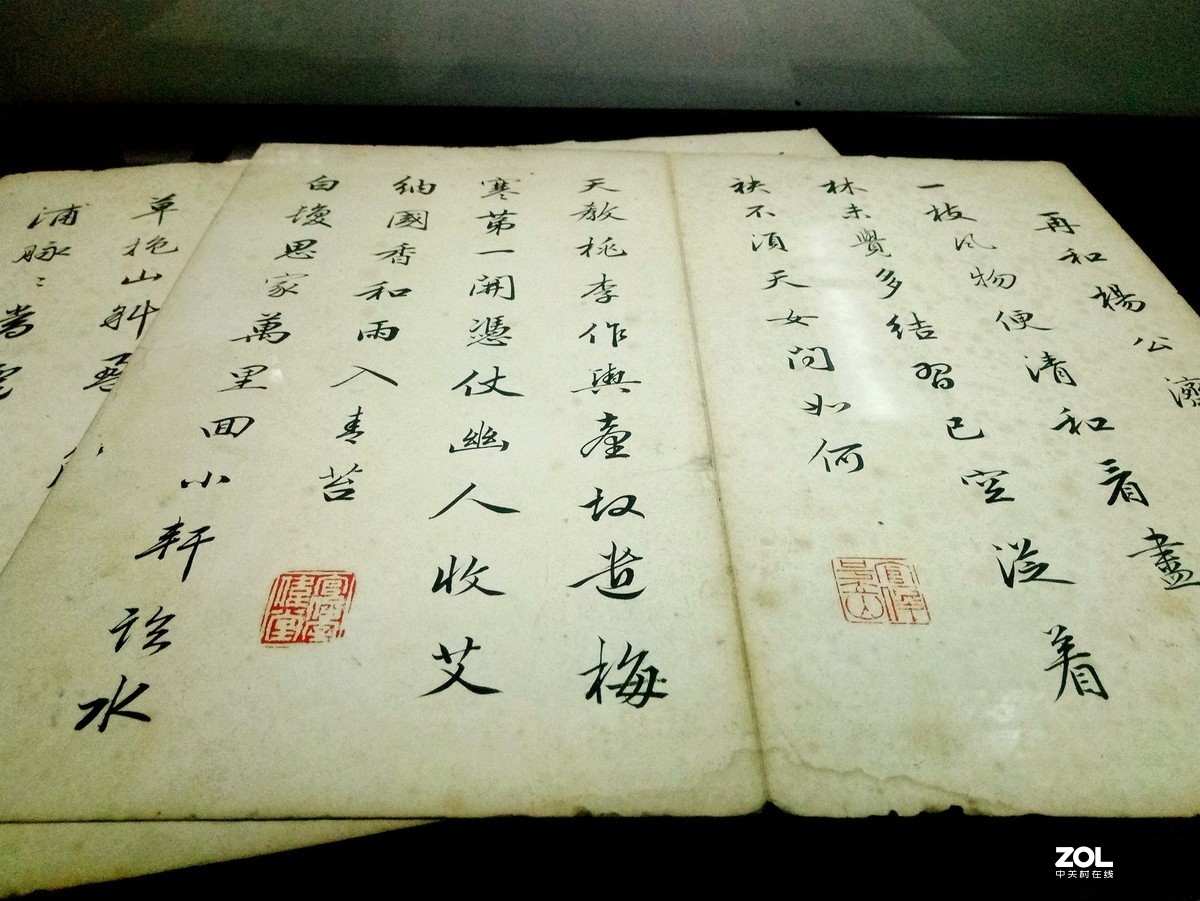 再和楊公濟
一枝風物便清和看盡
林未覺多結習已空從着
袂不須天女問如何
天教桃李作輿臺故遣梅
寒第一開憑仗幽人收艾
納國香和雨入青苔
白髮思家萬里回小軒臨水
草抱山斜盈
浦脉々當壚
ZOL
中关村在线